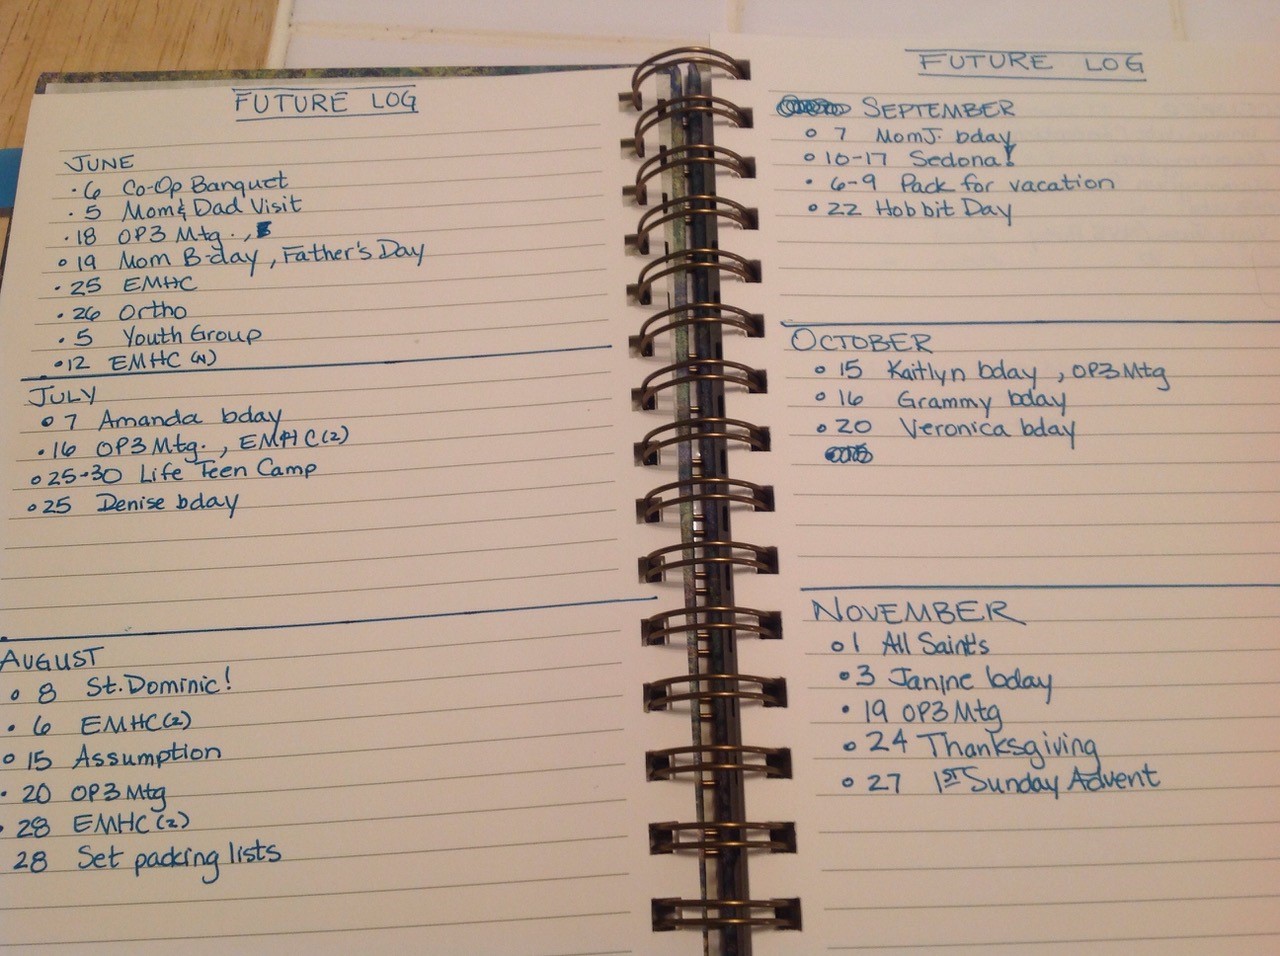 FUTURE LOG
JUNE
· 6 Co-Op Banquet
· 5 Mom & Dad Visit
· 18 OP3 Mtg. ,
o 19 Mom B-day , Father's Day
· 25 EMHC
· 26 Ortho
· 5 Youth Group
· 12 EMHC (N)
JULY
o 7 Amanda bday
· 16 OP3 Mtg. , EMHC (2)
o 25-30 Life Teen Camp
o 25 Denise bday
AUGUST
o 8 St. Dominic!
· 6 EMHC (2)
o 15 Assumption
· 20 OP3 Mtg
· 28 EMHC (2)
28 Set packing lists
FUTURE LOG
SEPTEMBER
o 7 Mom J. bday
o 10-17 Sedona!
· 6-9 Pack for vacation
o 22 Hobbit Day
OCTOBER
o 15 Kaitlyn bday , OP3 Mtg
o 16 Grammy bday
o 20 Veronica bday
NOVEMBER
o 1 All Saints
o 3 Janine bday
· 19 OP3 Mtg
o 24 Thanksgiving
o 27 1ST Sunday Advent